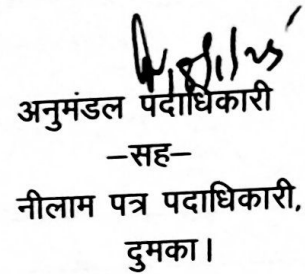 अनुमंडल पदाधिकारी
–सह–
नीलाम पत्र पदाधिकारी,
दुमका।